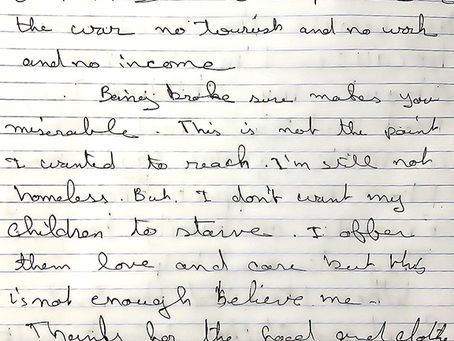 the war no tourist and no work
and no income
. Being broke sure makes you
miserable. This is not the point
I wanted to reach. I'm still not
homeless. But. I don't want my
children to starve. I offer
them love and care but this
is not enough believe me -.
Thanks for the food and clothe